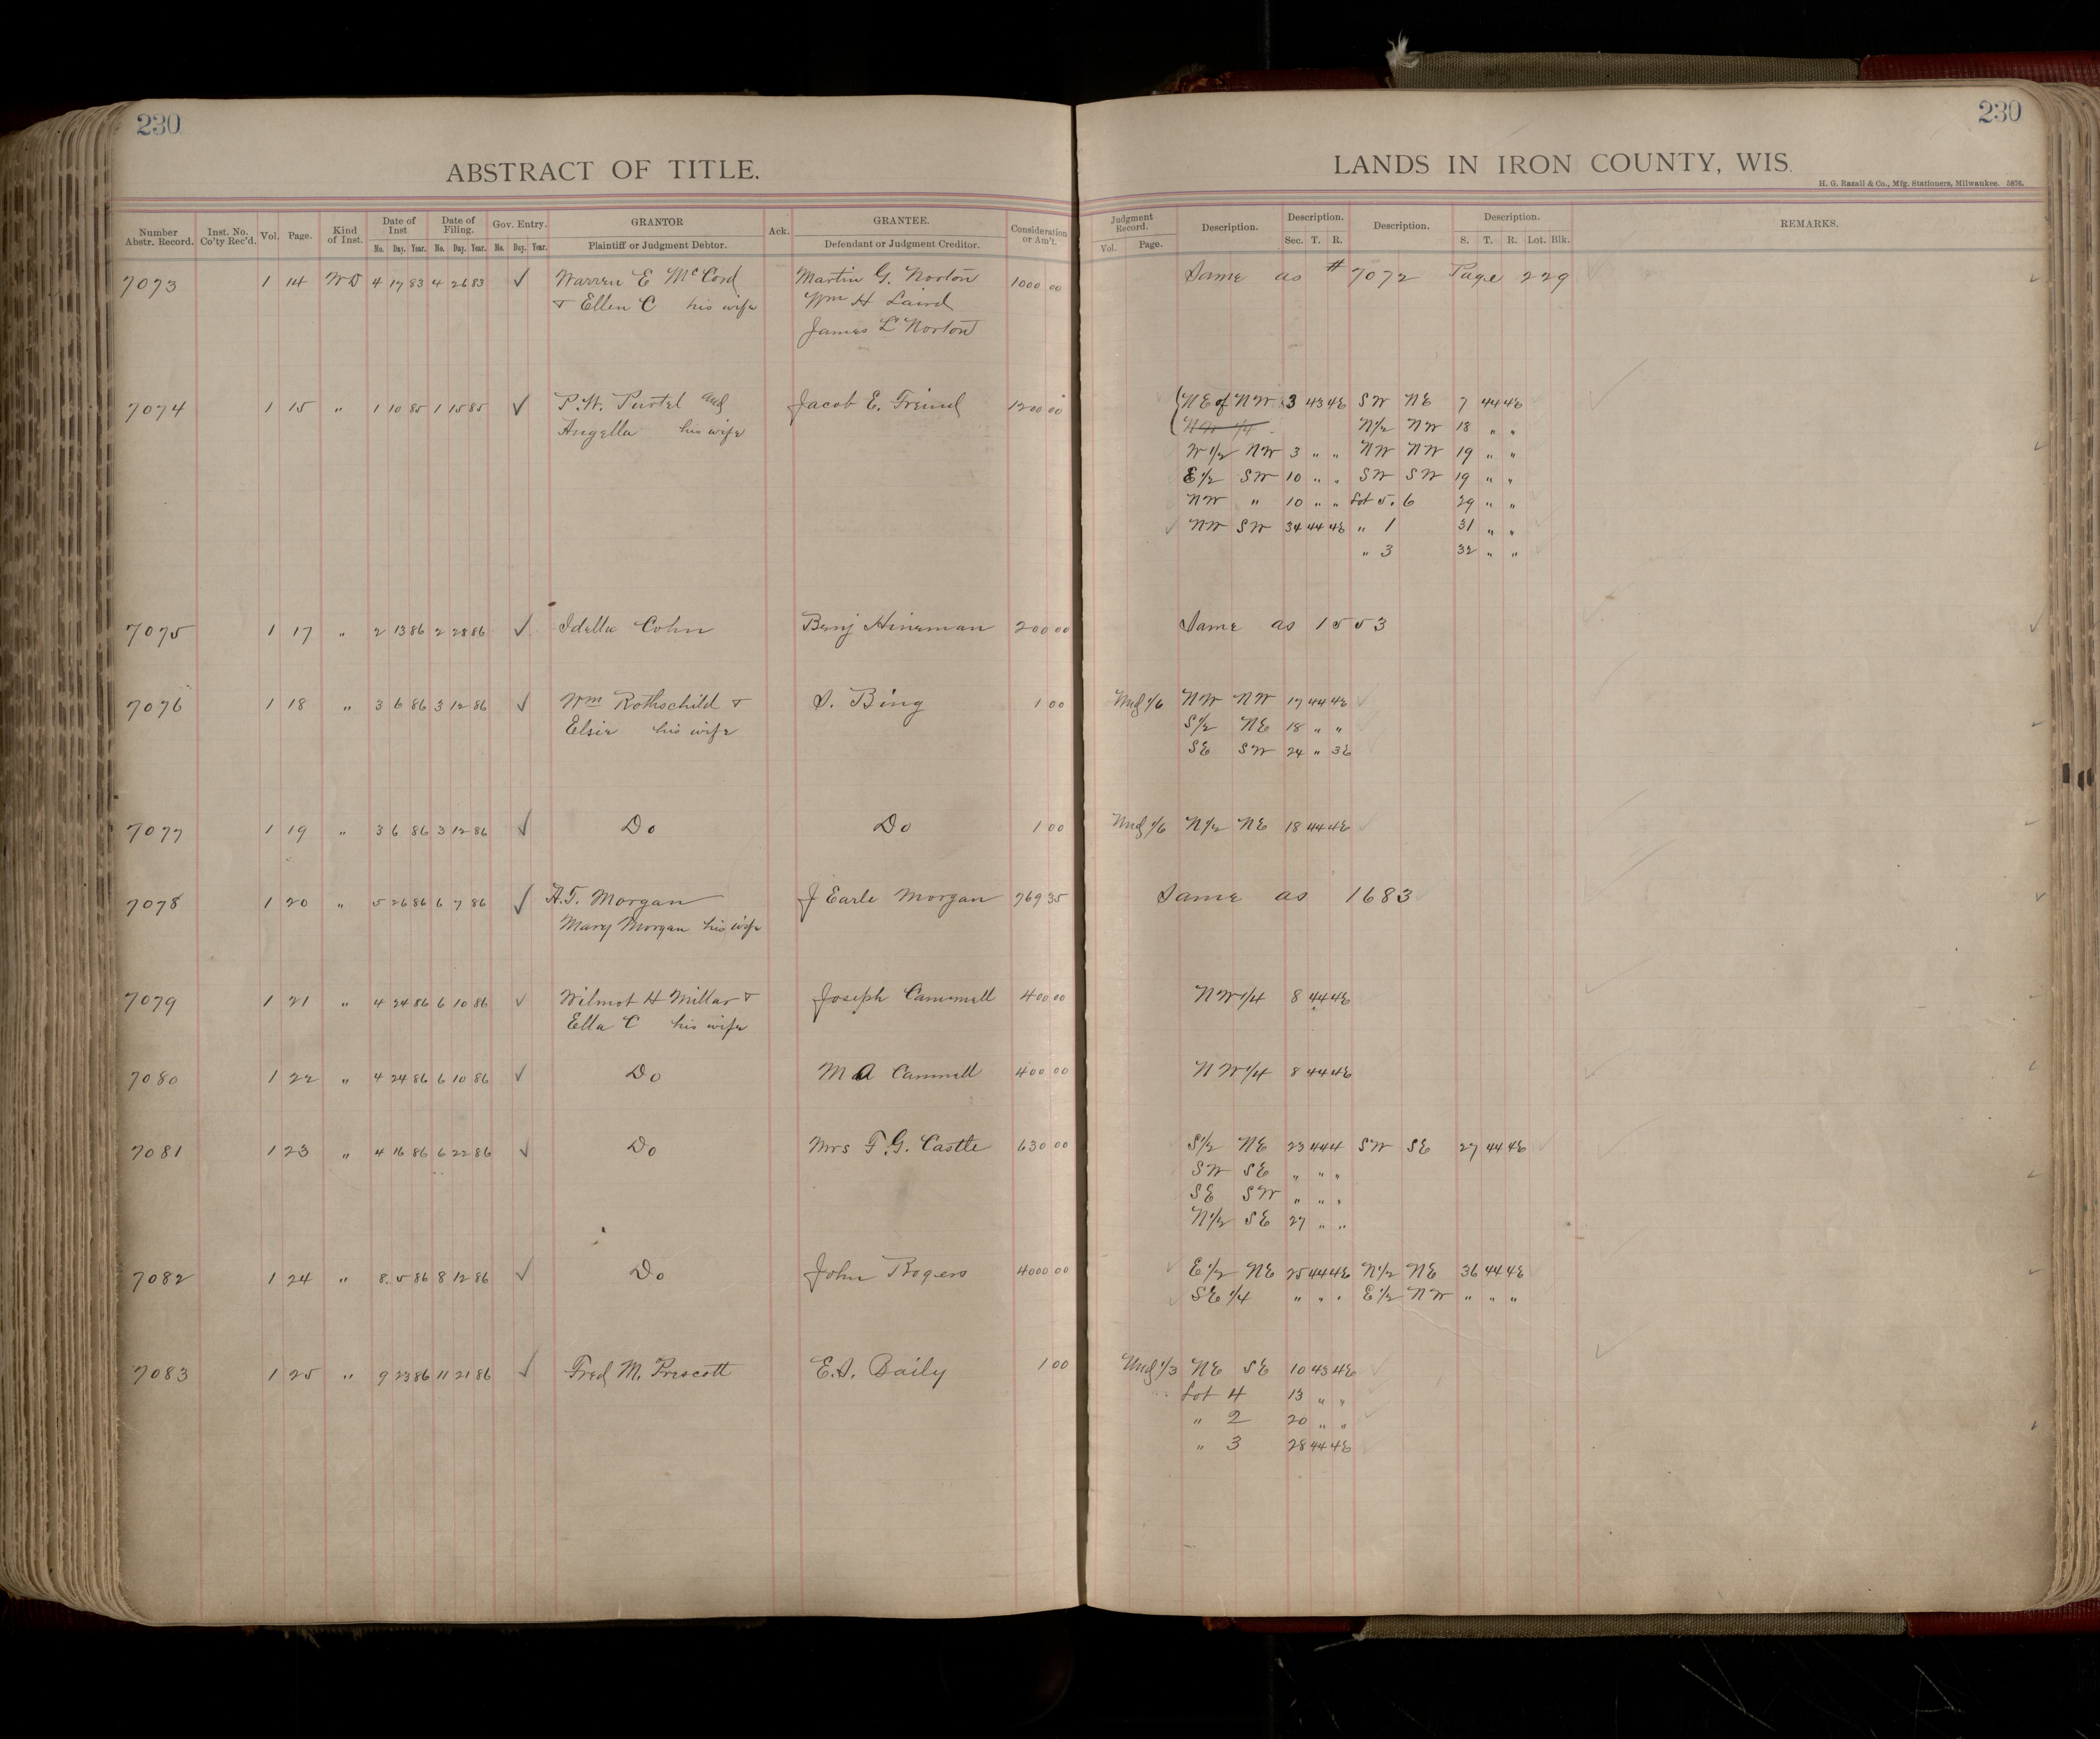 230
230
ABSTRACT OF TITLE.
LANDS IN IRON COUNTY, WIS.
H. G. Razall & Co., Mfg. Stationers, Milwaukee. 5876.
Number Abstr. Record. Inst. No. Co'ty Rec'd. Vol. Page. Kind of Inst. Date of Inst No. Day. Year. Date of Filing. No. Day. Year. Gov. Entry. No. Day. Year. GRANTOR Plaintiff or Judgment Debtor. Ack. GRANTEE. Defendant or Judgment Creditor. Consideration or Am't. Judgment Record. Vol. Page. Description. Description. Sec. T. R. Description. Description. S. T. R. Lot. Blk. REMARKS.
7073 1 14 WD 4 17 83 4 26 83 ✓ Warren E McCord Martin G. Norton 1000 00 Same as # 7072 Page 229
& Ellen C his wife Wm H Laird
James L Norton
7074 1 15 " 1 10 85 1 15 85 ✓ P.H. Purtel and Jacob E. Freind 1200 00 NE of NW 3 43 4E SW NE 7 44 4E
Angella his wife NW 1/4 N/2 NW 18 " "
W1/2 NW 3 " " NW NW 19 " "
E1/2 SW 10 " " SW SW 19 " "
NW " 10 " " Lot 5.6 29 " "
✓ NW SW 34 44 4E " 1 31 " "
" 3 32 " "
7075 1 17 " 2 13 86 2 28 86 ✓ Idella Cohn Benj Hineman 200 00 Same as 1553
7076 1 18 " 3 6 86 3 12 86 ✓ Wm Rothschild & S. Bing 1 00 Und 1/6 NW NW 17 44 4E
Elsie his wife S1/2 NE 18 " "
SE SW 24 " 3E
7077 1 19 " 3 6 86 3 12 86 ✓ Do Do 1 00 Und 1/6 N/2 NE 18 44 4E
7078 1 20 " 5 26 86 6 7 86 ✓ A.T. Morgan J Earle Morgan 769 35 Same as 1683
Mary Morgan his wife
7079 1 21 " 4 24 86 6 10 86 ✓ Wilmot H Millar & Joseph 400 00 NW1/4 8 44 4E
Ella C his wife
7080 1 22 " 4 24 86 6 10 86 ✓ Do M A 400 00 NW1/4 8 44 4E
7081 1 23 " 4 16 86 6 22 86 ✓ Do Mrs F.G. Castle 630 00 S1/2 NE 23 44 4 SW SE 27 44 4E
SW SE " " "
SE SW " " "
N1/2 SE 27 " "
7082 1 24 " 8 5 86 8 12 86 ✓ Do John Rogers 4000 00 E1/2 NE 25 44 4E N1/2 NE 36 44 4E
SE 1/4 " " " E1/2 NW " " "
7083 1 25 " 9 23 86 11 21 86 ✓ Fred M. Prescott E.S. Baily 1 00 Und 1/3 NE SE 10 43 4E
Lot 4 13 " "
" 2 20 " "
" 3 28 44 4E